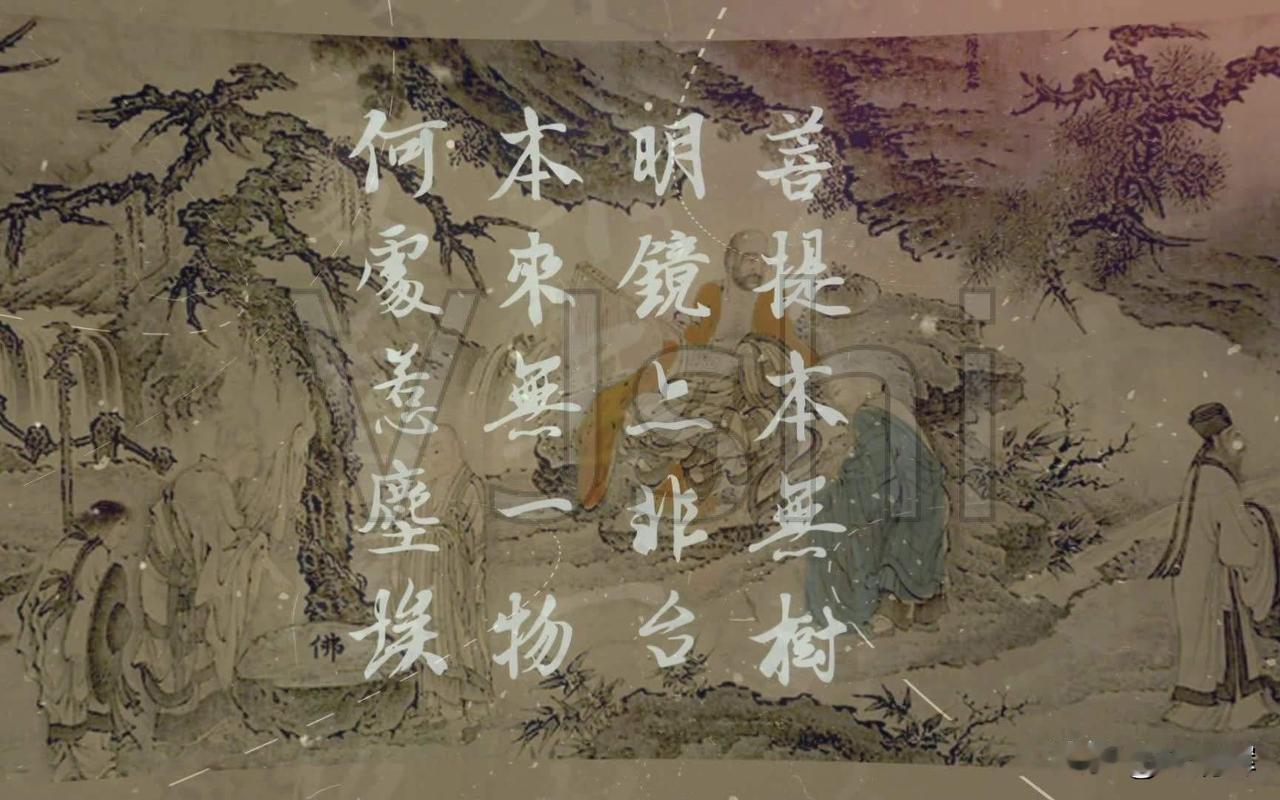 菩提本無樹
明鏡上非台
本來無一物
何處惹塵埃
佛
VJshi